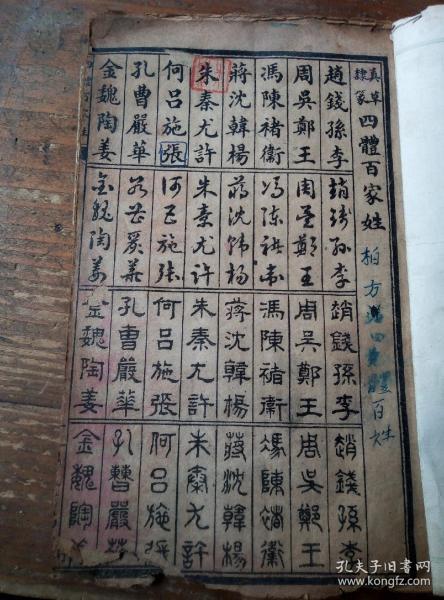 真草
隸篆
四體百家姓
趙錢孫李
周吳鄭王
馮陳褚衞
蔣沈韓楊
朱秦尤許
何呂施張
孔曹嚴華
金魏陶姜
趙錢孫李
周吳鄭王
馮陳褚衞
蔣沈韓楊
朱秦尤許
何呂施張
孔曹嚴華
金魏陶姜
趙錢孫李
周吳鄭王
馮陳褚衞
蔣沈韓楊
朱秦尤許
何呂施張
孔曹嚴華
金魏陶姜
趙錢孫李
周吳鄭王
馮陳褚衞
蔣沈韓楊
朱秦尤許
何呂施張
孔曹嚴華
金魏陶
四體百姓
孔夫子旧书网
www.kongfz.com